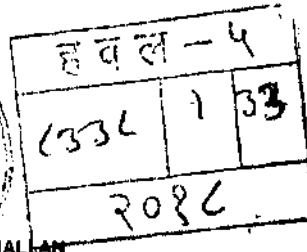 हवल - ५
८३३८ १ 33
२०१८